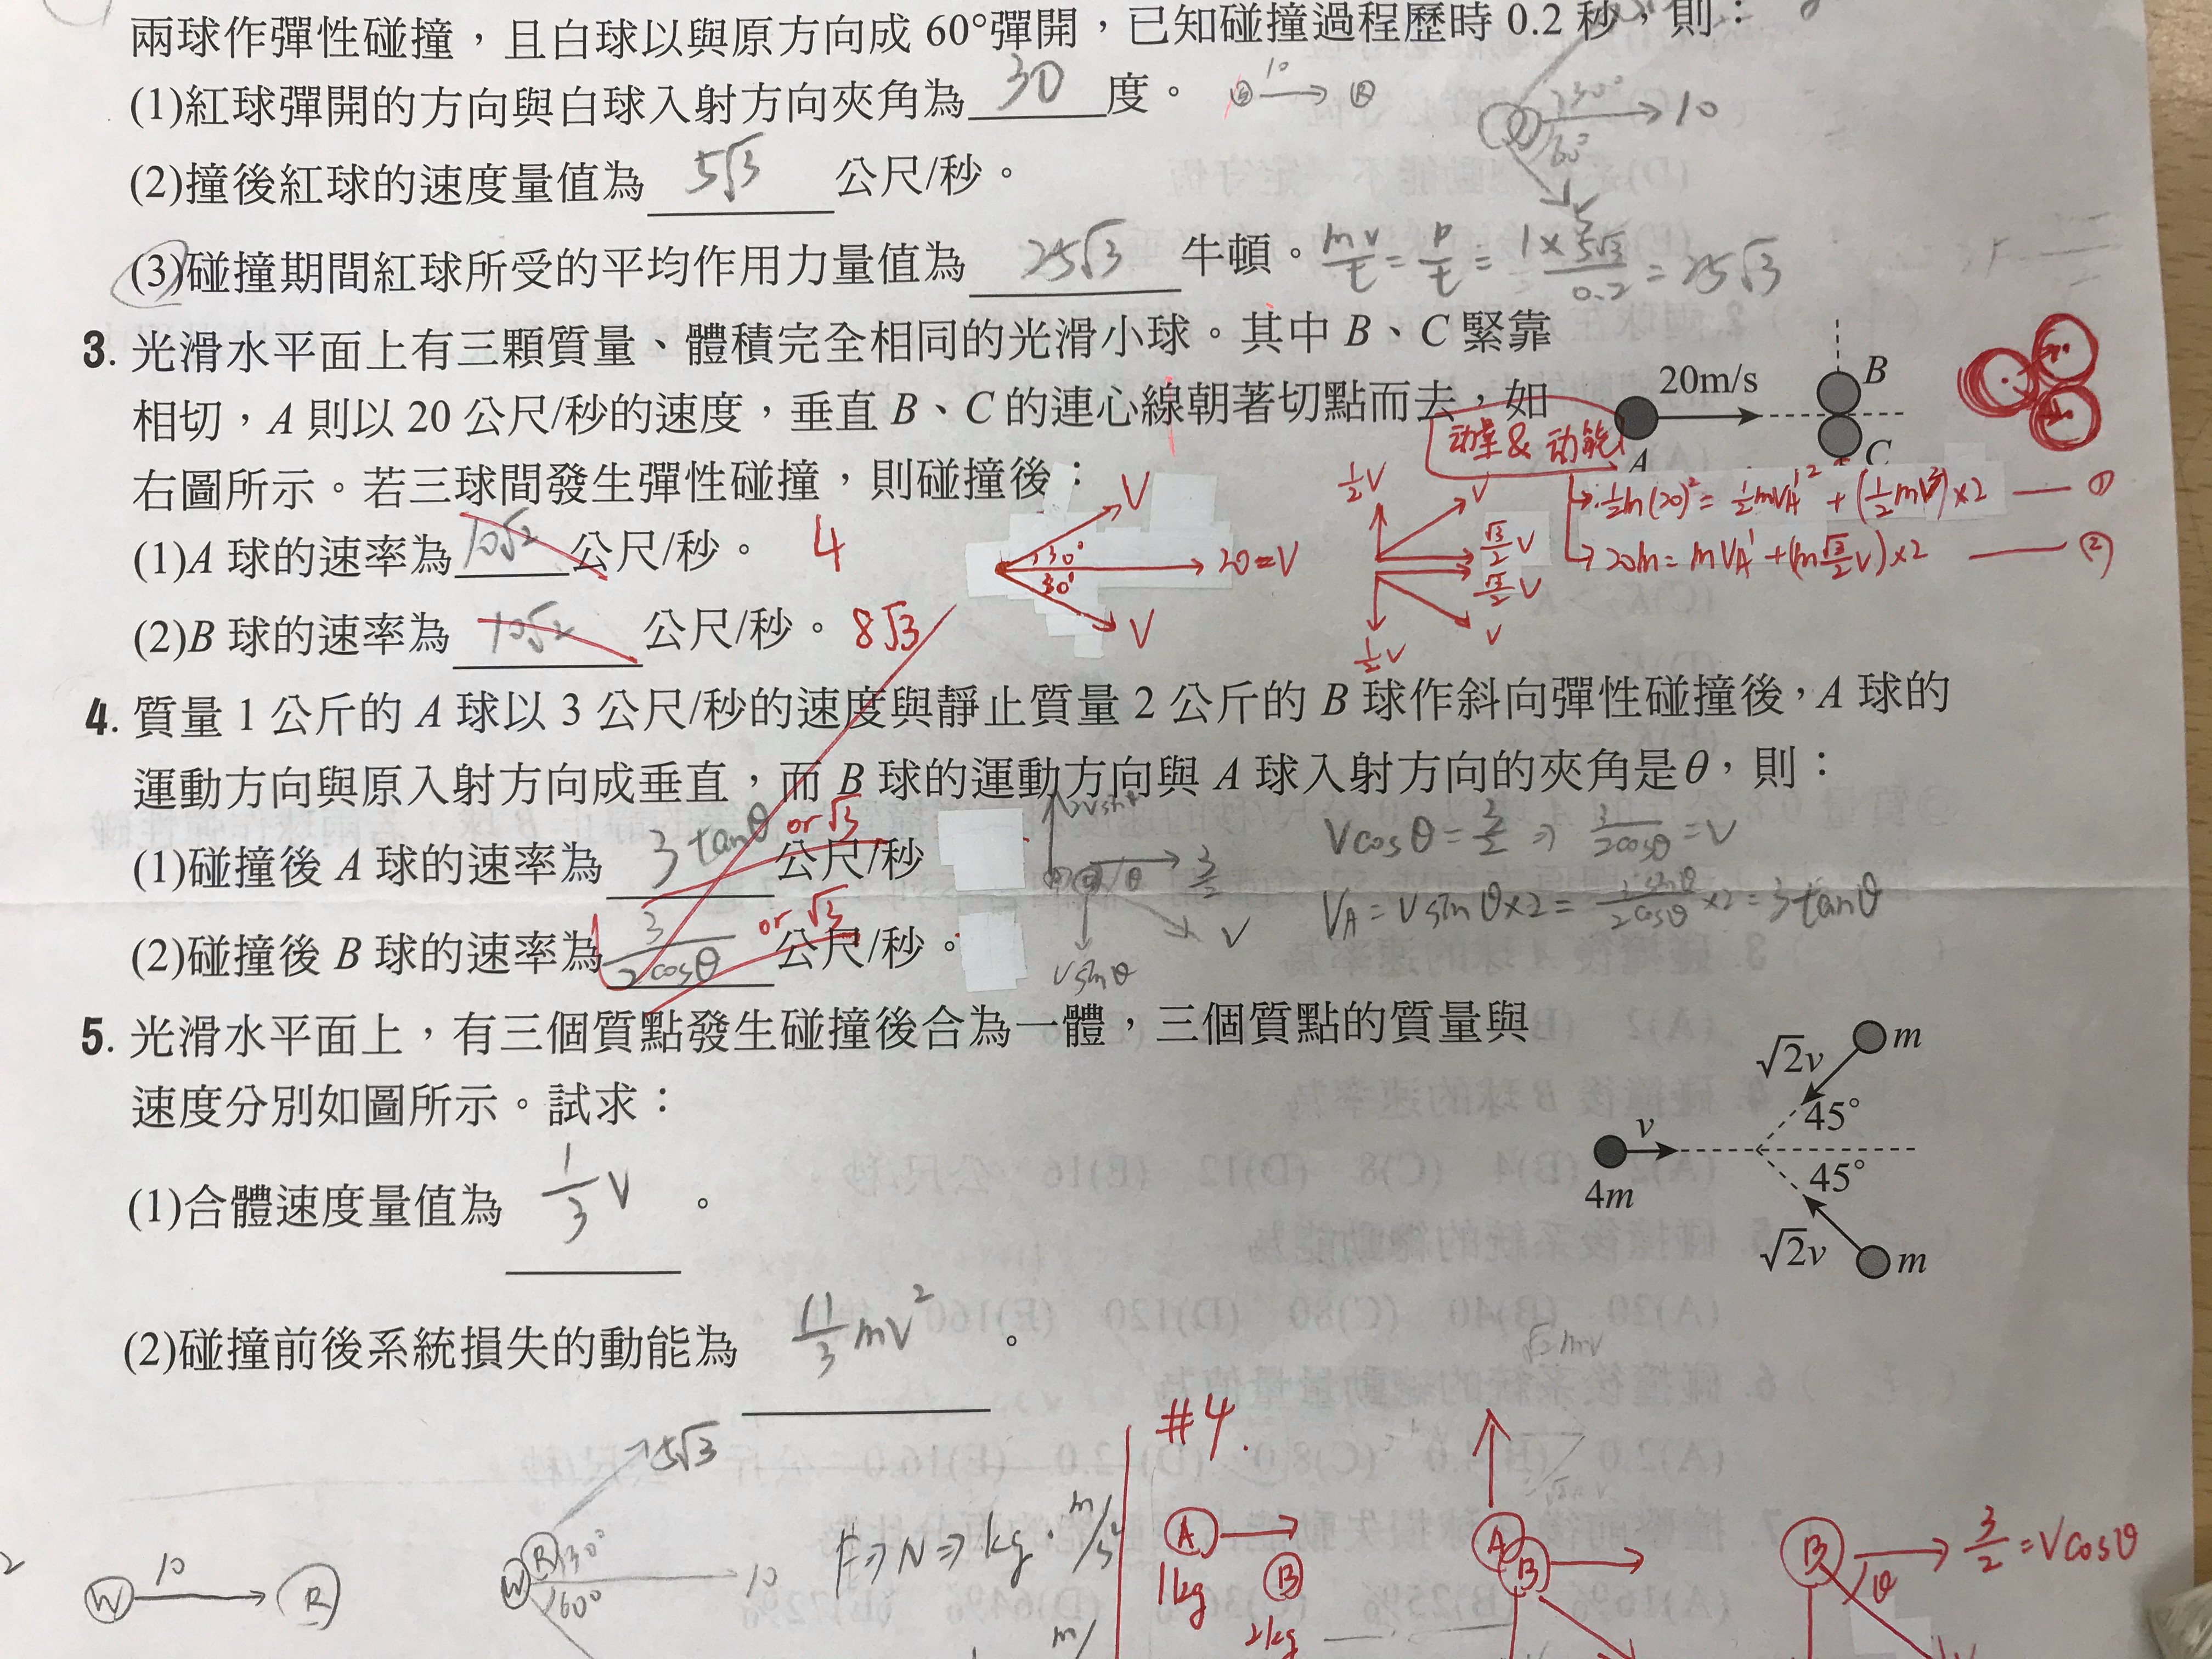 兩球作彈性碰撞，且白球以與原方向成 60°彈開，已知碰撞過程歷時 0.2 秒，則：
(1)紅球彈開的方向與白球入射方向夾角為 30 度。
10
30°
60°
10
(2)撞後紅球的速度量值為 5√3 公尺/秒。
(3)碰撞期間紅球所受的平均作用力量值為 25√3 牛頓。 mv/t = p/t = 1×5√3/0.2 = 25√3
3. 光滑水平面上有三顆質量、體積完全相同的光滑小球。其中 B、C 緊靠
相切，A 則以 20 公尺/秒的速度，垂直 B、C 的連心線朝著切點而去，如
右圖所示。若三球間發生彈性碰撞，則碰撞後：
20m/s
A
B
C
动量 & 动能
½m(20)² = ½mVA'² + (½mV²)×2 —— ①
20m = mVA' + (m √3/2 V)×2 —— ②
(1)A 球的速率為 10√2 公尺/秒。 4
(2)B 球的速率為 10√2 公尺/秒。 8√3
V
30°
30°
20=V
V
½V
V
√3/2 V
√3/2 V
V
½V
4. 質量 1 公斤的 A 球以 3 公尺/秒的速度與靜止質量 2 公斤的 B 球作斜向彈性碰撞後，A 球的
運動方向與原入射方向成垂直，而 B 球的運動方向與 A 球入射方向的夾角是θ，則：
(1)碰撞後 A 球的速率為 3 tanθ or √3 公尺/秒
(2)碰撞後 B 球的速率為 3/2cosθ or √3 公尺/秒。
2Vsinθ
θ
3/2
V
Vsinθ
Vcosθ = 3/2 ⇒ 3/2cosθ = V
VA = Vsinθ×2 = 3sinθ/2cosθ ×2 = 3tanθ
5. 光滑水平面上，有三個質點發生碰撞後合為一體，三個質點的質量與
速度分別如圖所示。試求：
(1)合體速度量值為 1/3 V 。
(2)碰撞前後系統損失的動能為 11/3 mV² 。
√2v
m
45°
v
4m
45°
√2v
m
√2mv
W
10
R
5√3
W
R
30°
60°
10
F⇒N⇒kg·m/s
m/
#4.
A
1kg
B
2kg
A
B
B
θ
3/2 = Vcosθ